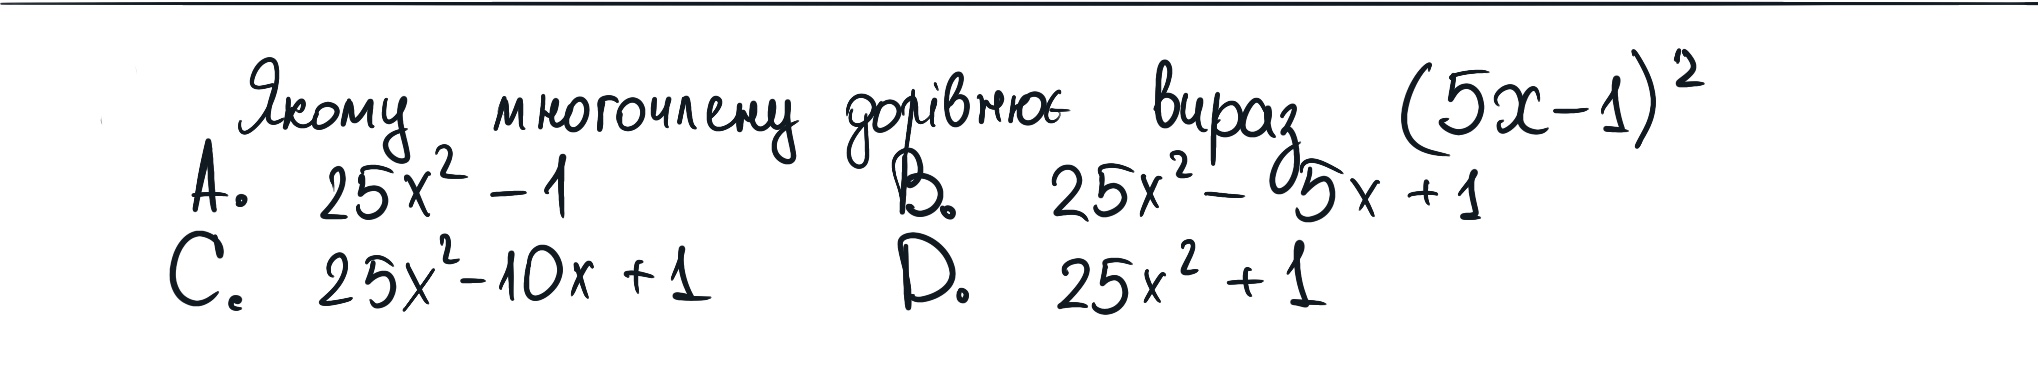 Якому многочлену дорівнює вираз (5x-1)²
A. 25x² - 1 B. 25x² - 5x + 1
C. 25x² - 10x + 1 D. 25x² + 1